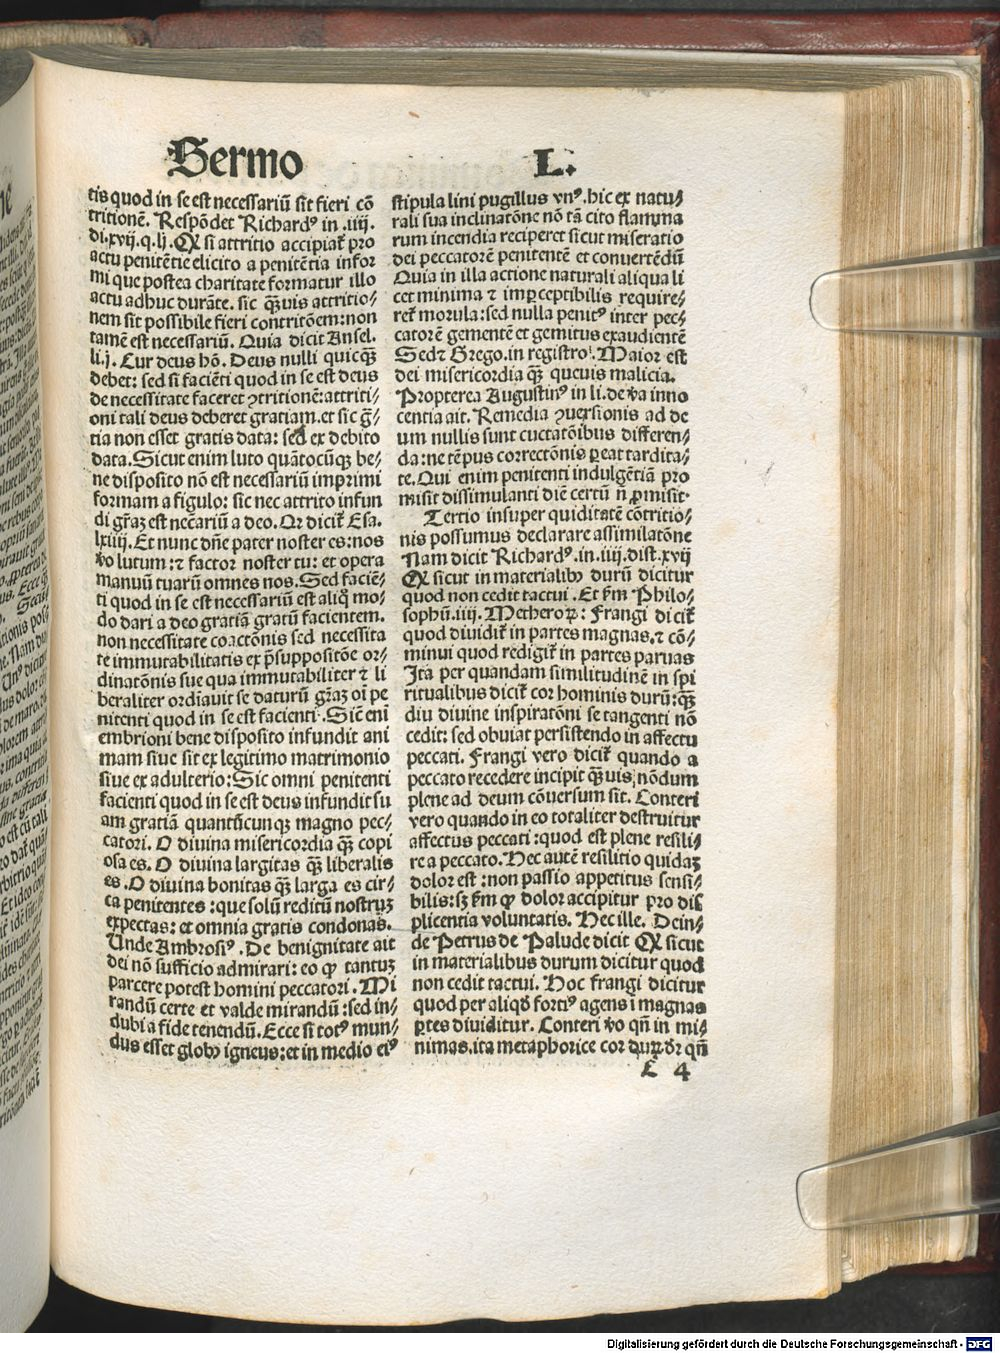 Sermo L.
tis quod in se est necessariū sit fieri cō
tritionē. Respōdet Richardꝰ in .iiij.
di.xvij.q.ij. Ꝙ si attritio accipiat̄ pro
actu penitētie elicito a penitētia infor
mi que postea charitate formatur illo
actu adhuc durāte. sic q̄uis attritio⸗
nem sit possibile fieri contritōem: non
tamē est necessariū. Quia dicit Ansel.
li.j. Cur deus hō. Deus nulli quicq̄
debet: sed si faciēti quod in se est deus
de necessitate faceret ꝯtritionē: attriti⸗
oni tali deus deberet gratiam. et sic ḡ⸗
tia non esset gratis data: sed ex debito
data. Sicut enim luto quātocūqꝫ be⸗
ne disposito nō est necessariū imprimi
formam a figulo: sic nec attrito infun
di gr̄aꝫ est necēariū a deo. Qr̄ dicit̄ Esa.
lxiiij. Et nunc dn̄e pater noster es: nos
ꝟo lutum: ⁊ factor noster tu: et opera
manuū tuarū omnes nos. Sed faciē⸗
ti quod in se est necessariū est aliq̊ mo⸗
do dari a deo gratiā gratū facientem.
non necessitate coactōnis sed necessita
te immutabilitatis ex p̄suppositōe or⸗
dinatōnis sue qua immutabiliter ⁊ li
beraliter ordīauit se daturū gr̄aꝫ oī pe
nitenti quod in se est facienti. Sic̄ enī
embrioni bene disposito infundit ani
mam siue sit ex legitimo matrimonio
siue ex adulterio: Sic omni penitenti
facienti quod in se est deus infundit su
am gratiā quantūcunqꝫ magno pec⸗
catori. O diuina misericordia q̄ꝫ copi
osa es. O diuina largitas q̄ꝫ liberalis
es. O diuina bonitas q̄ꝫ larga es cir⸗
ca penitentes: que solū reditū nostruꝫ
expectas: et omnia gratis condonas.
Unde Ambrosiꝰ. De benignitate ait
dei nō sufficio admirari: eo ꝙ tantuꝫ
parcere potest homini peccatori. Mi
randū certe et valde mirandū: sed in⸗
dubia fide tenendū. Ecce si totꝰ mun⸗
dus esset globꝰ igneus: et in medio eiꝰ
stipula lini pugillus vnꝰ. hic ex natu⸗
rali sua inclinatōne nō tā cito flamma
rum incendia reciperet sicut miseratio
dei peccatorē penitentē et conuertēdū
Quia in illa actione naturali aliqua li
cet minima ⁊ imꝑceptibilis require⸗
ret̄ morula: sed nulla penitꝰ inter pec⸗
catorē gementē et gemitus exaudientē
Sed⁊ Grego. in registro. Maior est
dei misericordia q̄ꝫ queuis malicia.
Propterea Augustinꝰ in li. de ꝟa inno
centia ait. Remedia ꝯuersionis ad de
um nullis sunt cūctatōibus differen⸗
da: ne tēpus correctōnis ꝑeat tardita⸗
te. Qui enim penitenti indulgētiā pro
misit dissimulanti diē certū n̄ ꝓmisit.
Tertio insuper quiditatē cōtritio⸗
nis possumus declarare assimilatōne
Nam dicit Richardꝰ. in .iiij. dist. xvij
Ꝙ sicut in materialibꝰ durū dicitur
quod non cedit tactui. Et ẜm Philo⸗
sophū .iiij. Metheroꝝ: Frangi dicit̄
quod diuidit̄ in partes magnas. ⁊ cō⸗
minui quod redigit̄ in partes paruas
Ita per quandam similitudinē in spi
ritualibus dicit̄ cor hominis durū: q̄ꝫ
diu diuine inspiratōni se tangenti nō
cedit: sed obuiat persistendo in affectu
peccati. Frangi vero dicit̄ quando a
peccato recedere incipit q̄ꝫuis nōdum
plene ad deum cōuersum sit. Conteri
vero quando in eo totaliter destruitur
affectus peccati: quod est plene resili⸗
re a peccato. Hec autē resilitio quidaꝫ
dolor est: non passio appetitus sensi⸗
bilis: sꝫ ẜm ꝙ dolor accipitur pro dis
plicentia voluntatis. Hec ille. Dein⸗
de Petrus de Palude dicit Ꝙ sicut
in materialibus durum dicitur quod
non cedit tactui. Hoc frangi dicitur
quod per aliqd̄ fortiꝰ agens ī magnas
ꝑtes diuiditur. Conteri ꝟo qn̄ in mi⸗
nimas. ita metaphorice cor duꝝ dr̄ qn̄
4
Digitalisierung gefördert durch die Deutsche Forschungsgemeinschaft - DFG